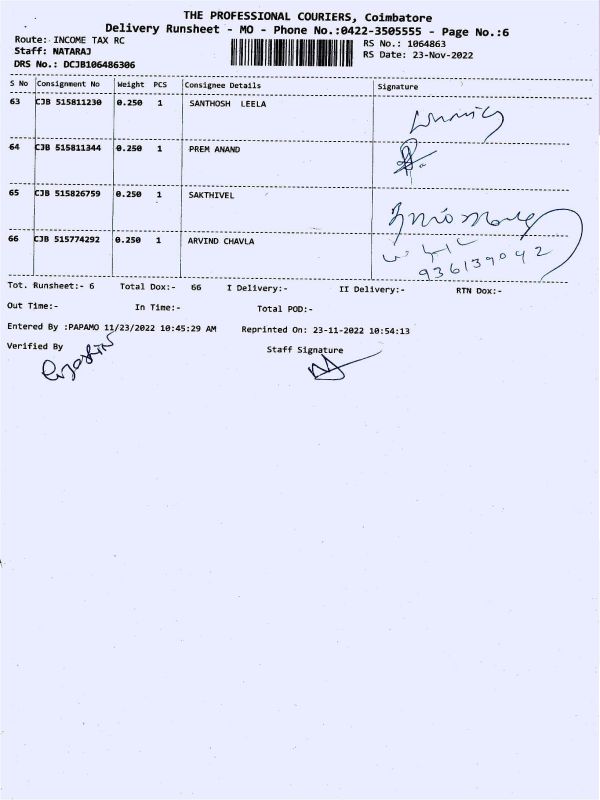 THE PROFESSIONAL COURIERS, Coimbatore
Delivery Runsheet - MO - Phone No.:0422-3505555 - Page No.:6
Route: INCOME TAX RC
RS No.: 1064863
Staff: NATARAJ
RS Date: 23-Nov-2022
DRS No.: DCJB106486306
S No Consignment No Weight PCS Consignee Details Signature
63 CJB 515811230 0.250 1 SANTHOSH LEELA
64 CJB 515811344 0.250 1 PREM ANAND
65 CJB 515826759 0.250 1 SAKTHIVEL
66 CJB 515774292 0.250 1 ARVIND CHAVLA
936139042
Tot. Runsheet:- 6 Total Dox:- 66 I Delivery:- II Delivery:- RTN Dox:-
Out Time:- In Time:- Total POD:-
Entered By :PAPAMO 11/23/2022 10:45:29 AM Reprinted On: 23-11-2022 10:54:13
Verified By Staff Signature